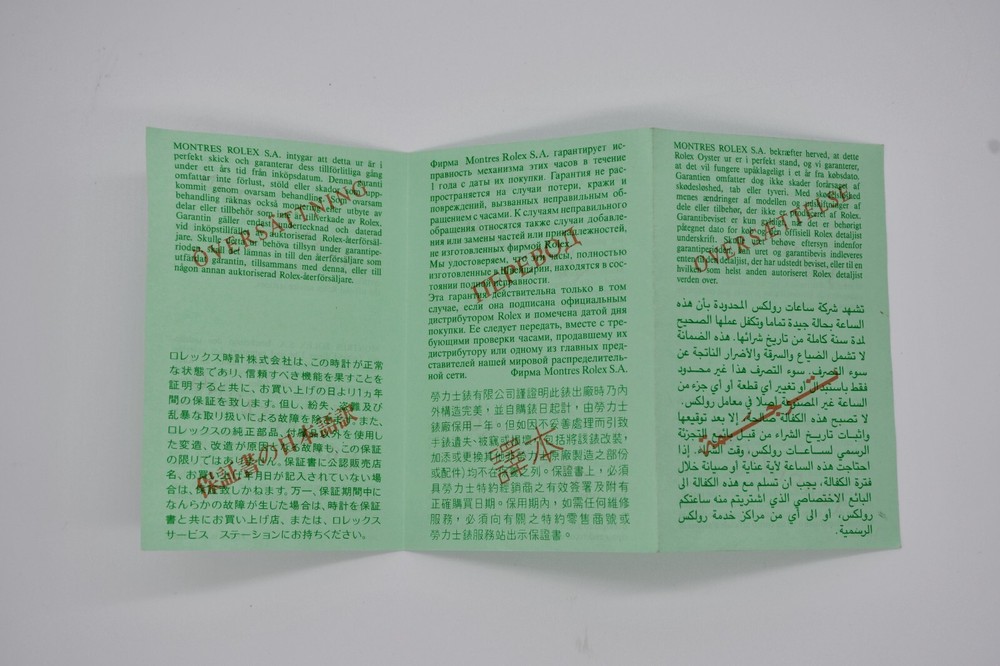 MONTRES ROLEX S.A. intygar att detta ur är i
perfekt skick och garanterar dess tillförlitliga gång
under ett års tid från inköpsdatum. Denna garanti
omfattar inte förlust, stöld eller skador som
kommit genom ovarsam behandling. Som ovarsam
behandling räknas också modifiering eller utbyte av
delar eller tillbehör som ej är tillverkade av Rolex.
Garantin gäller endast undertecknad och daterad
vid inköpstillfället av auktoriserad Rolex-återförsäl-
jare. Skulle uret behöva tillsyn under garantipe-
rioden, skall det lämnas in till den återförsäljare som
utfärdat garantin, tillsammans med denna, eller till
någon annan auktoriserad Rolex-återförsäljare.
ÖVERSÄTTNING
ロレックス時計株式会社は、この時計が正常
な状態であり、信頼すべき機能を果すことを
証明すると共に、お買い上げの日より1ヵ年
間の保証を致します。但し、紛失、盗難及び
乱暴な取り扱いによる故障を除きます。また、
ロレックスの純正部品、付属品以外を使用し
た変造、改造が原因となる故障も、この保証
の限りではありません。保証書に公認販売店
名、お買い上げ年月日が記入されていない場合
は、保証致しかねます。万一、保証期間中に
なんらかの故障が生じた場合は、時計を保証
書と共にお買い上げ店、または、ロレックス
サービス ステーションにお持ちください。
保証書の日本語訳
Фирма Montres Rolex S.A. гарантирует ис-
правность механизма этих часов в течение
1 года с даты их покупки. Гарантия не рас-
пространяется на случаи потери, кражи и
повреждений, вызванных неправильным об-
ращением с часами. К случаям неправильного
обращения относятся также случаи добавле-
ния или замены частей или принадлежностей,
не изготовленных фирмой Rolex.
Мы удостоверяем, что часы, полностью
изготовленные в Швейцарии, находятся в сос-
тоянии полной исправности.
Эта гарантия действительна только в том
случае, если она подписана официальным
дистрибутором Rolex и помечена датой дня
покупки. Ее следует передать, вместе с тре-
бующими проверки часами, продавшему их
дистрибутору или одному из главных пред-
ставителей нашей мировой распределитель-
ной сети. Фирма Montres Rolex S.A.
ПЕРЕВОД
勞力士錶有限公司謹證明此錶出廠時乃內
外構造完美，並自購錶日起計，由勞力士
錶廠保用一年。但如因不妥善處理而引致
手錶遺失、被竊或損壞（包括將該錶改裝，
加添或更換其他非本原廠製造之部份
或配件）均不在保證之列。保證書上，必須
具勞力士特約經銷商之有效簽署及附有
正確購買日期。保用期內，如需任何維修
服務，必須向有關之特約零售商號或
勞力士錶服務站出示保證書。
譯本
MONTRES ROLEX S.A. bekræfter herved, at dette
Rolex Oyster ur er i perfekt stand, og vi garanterer,
at det vil fungere upåklageligt i et år fra købsdato.
Garantien omfatter dog ikke skader forårsaget af
skødesløshed, tab eller tyveri. Med skødesløshed
menes ændringer af modellen og udskiftninger af
dele eller tilbehør, der ikke er produceret af Rolex.
Garantibeviset er kun gyldigt, når det er behørigt
påtegnet dato for køb og en officiel Rolex detaljist
underskrift. Skulle uret behøve eftersyn indenfor
garantiperioden, skal uret og garantibevis indleveres
enten til den detaljist, der har udstedt beviset, eller til en
hvilken som helst anden autoriseret Rolex detaljist
verden over.
OVERSÆTTELSE
تشهد شركة ساعات رولكس المحدودة بأن هذه
الساعة بحالة جيدة تماما وتكفل عملها الصحيح
لمدة سنة كاملة من تاريخ شرائها. هذه الضمانة
لا تشمل الضياع والسرقة والأضرار الناتجة عن
سوء التصرف. سوء التصرف هذا غير محدود
فقط باستبدال أو تغيير أي قطعة أو أي جزء من
الساعة غير المصنوعة أصلا في معامل رولكس.
لا تصبح هذه الكفالة صالحة إلا بعد توقيعها
واثبات تاريخ الشراء من قبل بائع التجزئة
الرسمي لساعات رولكس، وقت الشراء. إذا
احتاجت هذه الساعة لأية عناية أو صيانة خلال
فترة الكفالة، يجب ان تسلم مع هذه الكفالة الى
البائع الاختصاصي الذي اشتريتم منه ساعتكم
رولكس، او الى أي من مراكز خدمة رولكس
الرسمية.
ترجمة